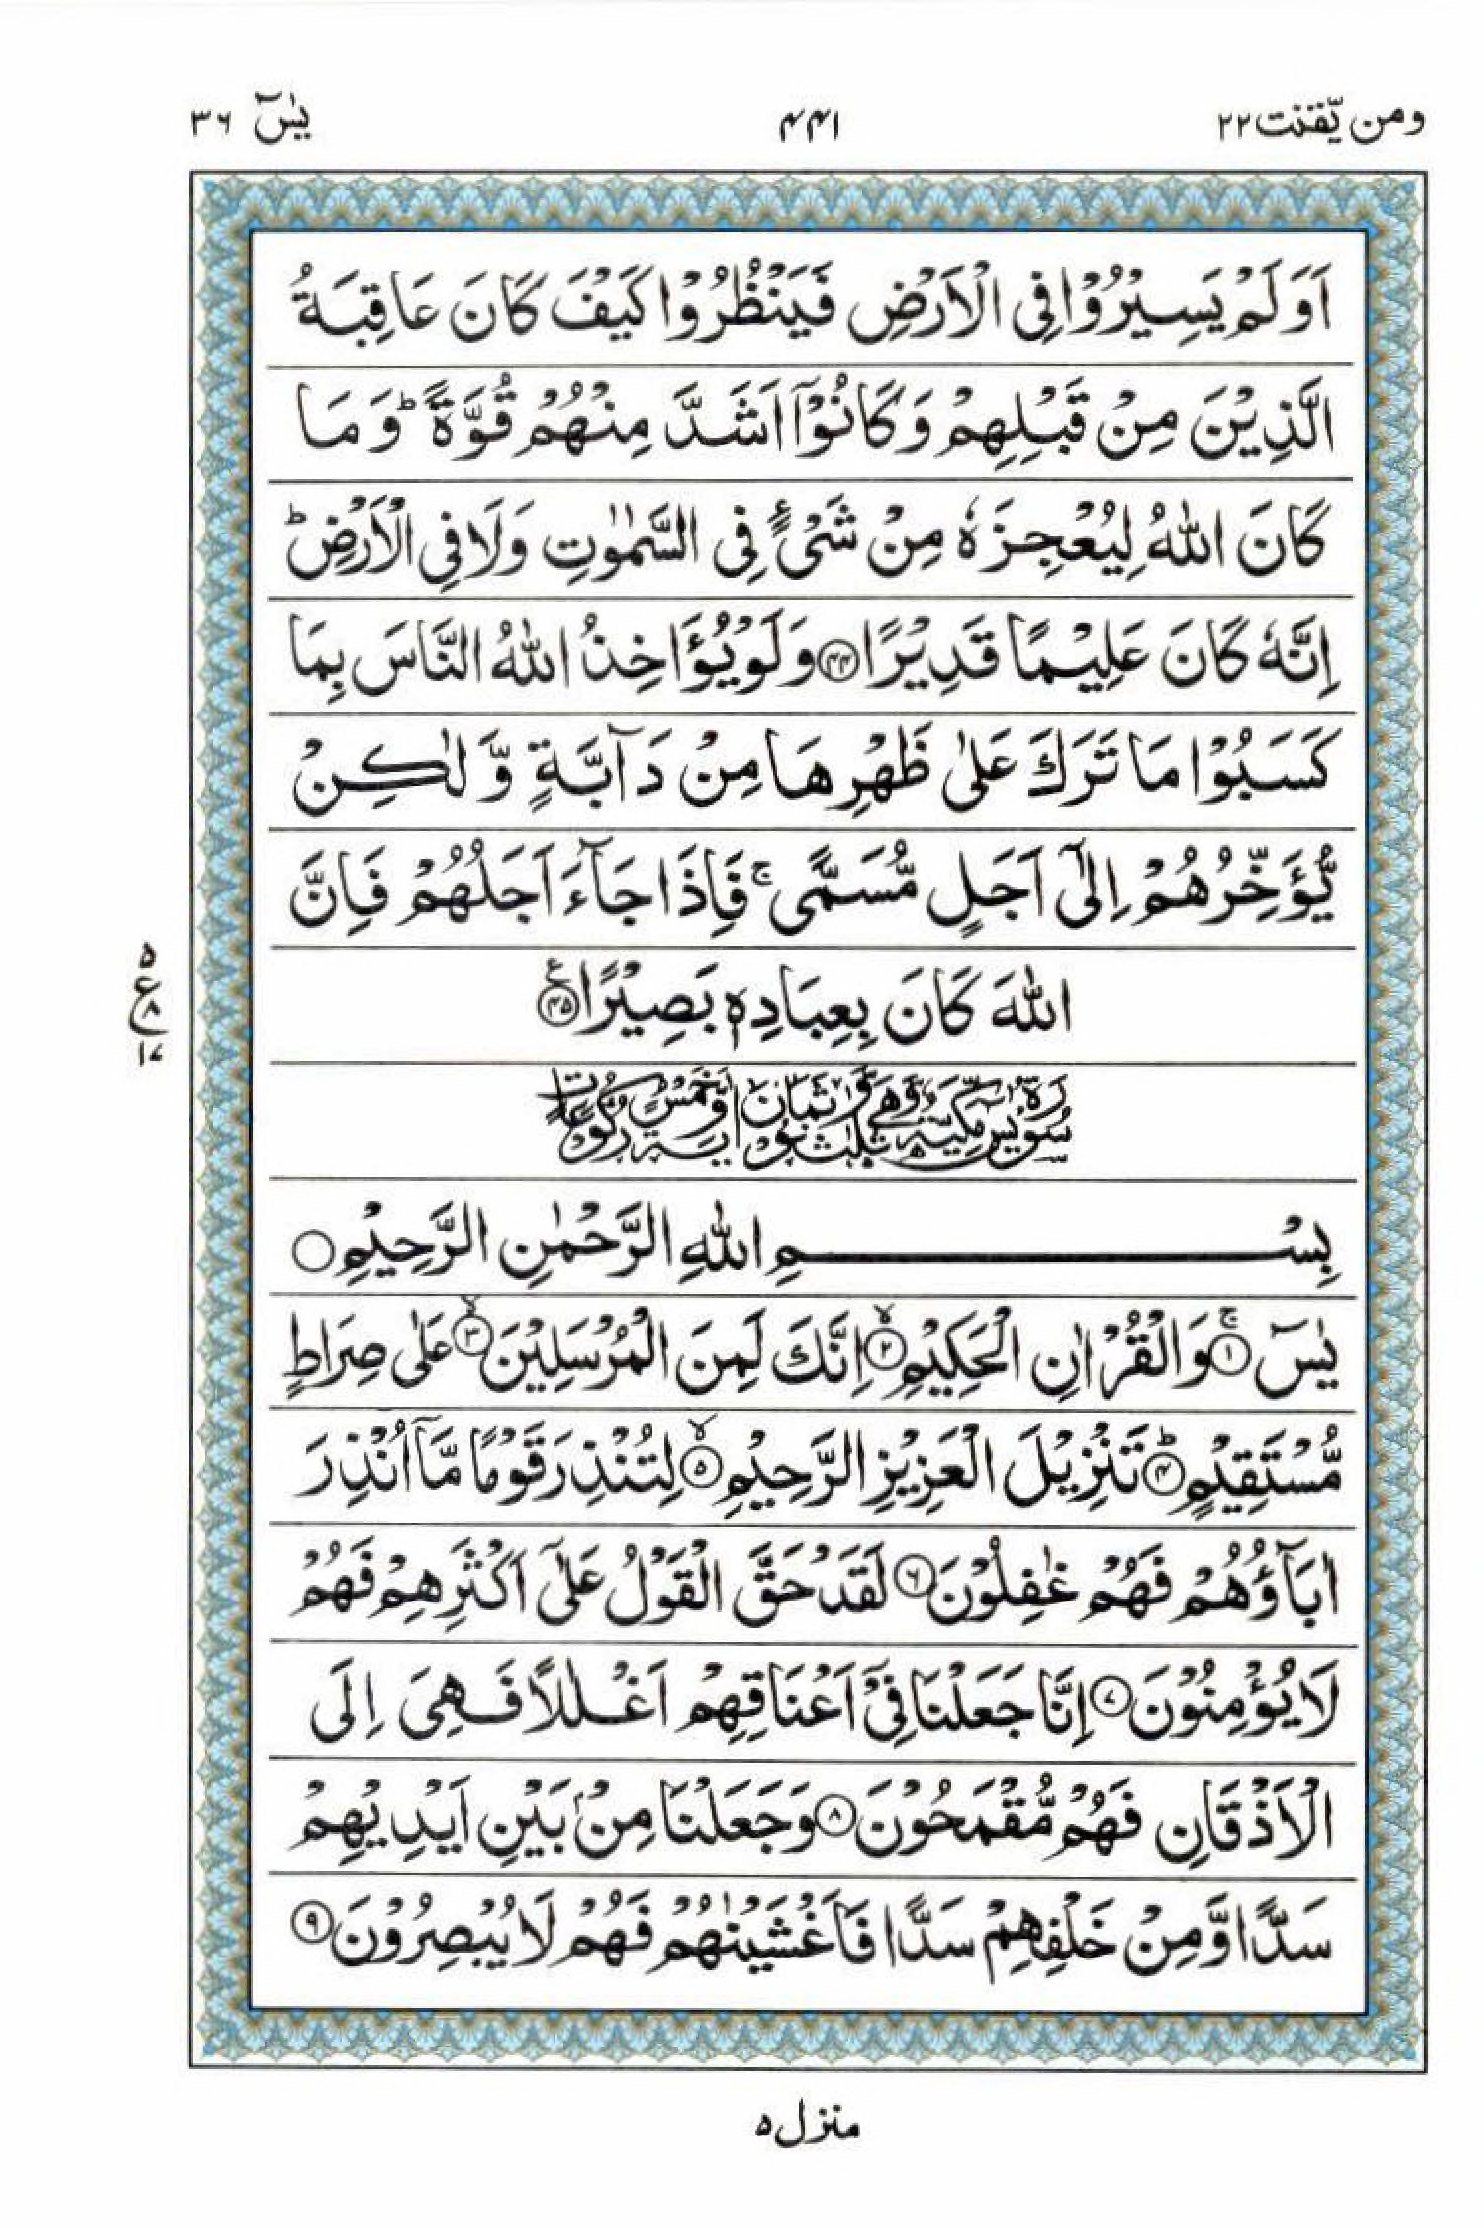 ومن یّقنت ۲۲
۴۴۱
یٰسٓ ۳۶
اَوَلَمْ یَسِیْرُوْا فِی الْاَرْضِ فَیَنْظُرُوْا كَیْفَ كَانَ عَاقِبَةُ
الَّذِیْنَ مِنْ قَبْلِهِمْ وَكَانُوْۤا اَشَدَّ مِنْهُمْ قُوَّةً ؕ وَمَا
كَانَ اللّٰهُ لِیُعْجِزَهٗ مِنْ شَیْءٍ فِی السَّمٰوٰتِ وَلَا فِی الْاَرْضِ ؕ
اِنَّهٗ كَانَ عَلِیْمًا قَدِیْرًا ﴿۴۴﴾ وَلَوْ یُؤَاخِذُ اللّٰهُ النَّاسَ بِمَا
كَسَبُوْا مَا تَرَكَ عَلٰی ظَهْرِهَا مِنْ دَآبَّةٍ وَّلٰكِنْ
یُّؤَخِّرُهُمْ اِلٰۤی اَجَلٍ مُّسَمًّی ۚ فَاِذَا جَآءَ اَجَلُهُمْ فَاِنَّ
اللّٰهَ كَانَ بِعِبَادِهٖ بَصِیْرًا ﴿۴۵﴾ ع
۵
ع ۸
۱۷
سُوْرَةُ یٰسٓ مَكِّیَّةٌ وَّهِیَ ثَلٰثٌ وَّثَمَانُوْنَ اٰیَةً وَّخَمْسُ رُكُوْعَاتٍ
بِسْمِ اللّٰهِ الرَّحْمٰنِ الرَّحِیْمِ ○
یٰسٓ ﴿۱﴾ ۚ وَالْقُرْاٰنِ الْحَكِیْمِ ﴿۲﴾ ۙ اِنَّكَ لَمِنَ الْمُرْسَلِیْنَ ﴿۳﴾ ۙ عَلٰی صِرَاطٍ
مُّسْتَقِیْمٍ ﴿۴﴾ ؕ تَنْزِیْلَ الْعَزِیْزِ الرَّحِیْمِ ﴿۵﴾ ۙ لِتُنْذِرَ قَوْمًا مَّاۤ اُنْذِرَ
اٰبَآؤُهُمْ فَهُمْ غٰفِلُوْنَ ﴿۶﴾ لَقَدْ حَقَّ الْقَوْلُ عَلٰۤی اَكْثَرِهِمْ فَهُمْ
لَا یُؤْمِنُوْنَ ﴿۷﴾ اِنَّا جَعَلْنَا فِیْۤ اَعْنَاقِهِمْ اَغْلٰلًا فَهِیَ اِلَی
الْاَذْقَانِ فَهُمْ مُّقْمَحُوْنَ ﴿۸﴾ وَجَعَلْنَا مِنْۢ بَیْنِ اَیْدِیْهِمْ
سَدًّا وَّمِنْ خَلْفِهِمْ سَدًّا فَاَغْشَیْنٰهُمْ فَهُمْ لَا یُبْصِرُوْنَ ﴿۹﴾
منزل ۵